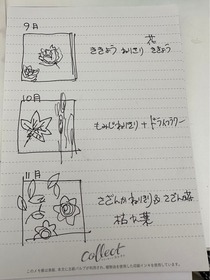 9月
花
ききょう ねりきり ききょう
10月
もみじねりきり + ドライフラワー
11月
さざんかねりきり & さざん花
枯れ葉
collect